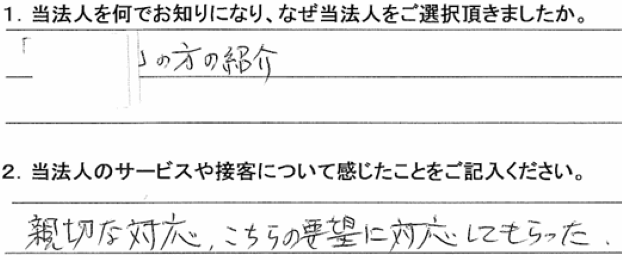 1. 当法人を何でお知りになり、なぜ当法人をご選択頂きましたか。
「 」の方の紹介
2. 当法人のサービスや接客について感じたことをご記入ください。
親切な対応，こちらの要望に対応してもらった．